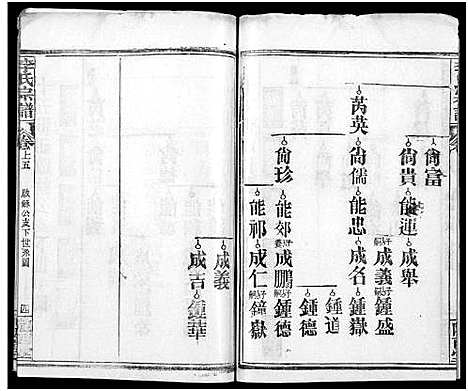 尙富
尙貴 能運 成舉
芮英 尙儒 能忠 成義 鍾盛
成名 鍾嶽
鍾道
鍾德
尙珍 能郊 成鵬 鍾德
能祁 成仁 鍾嶽
成義
成吉 鍾華
李氏宗譜
卷上五
公支下世系圖
四